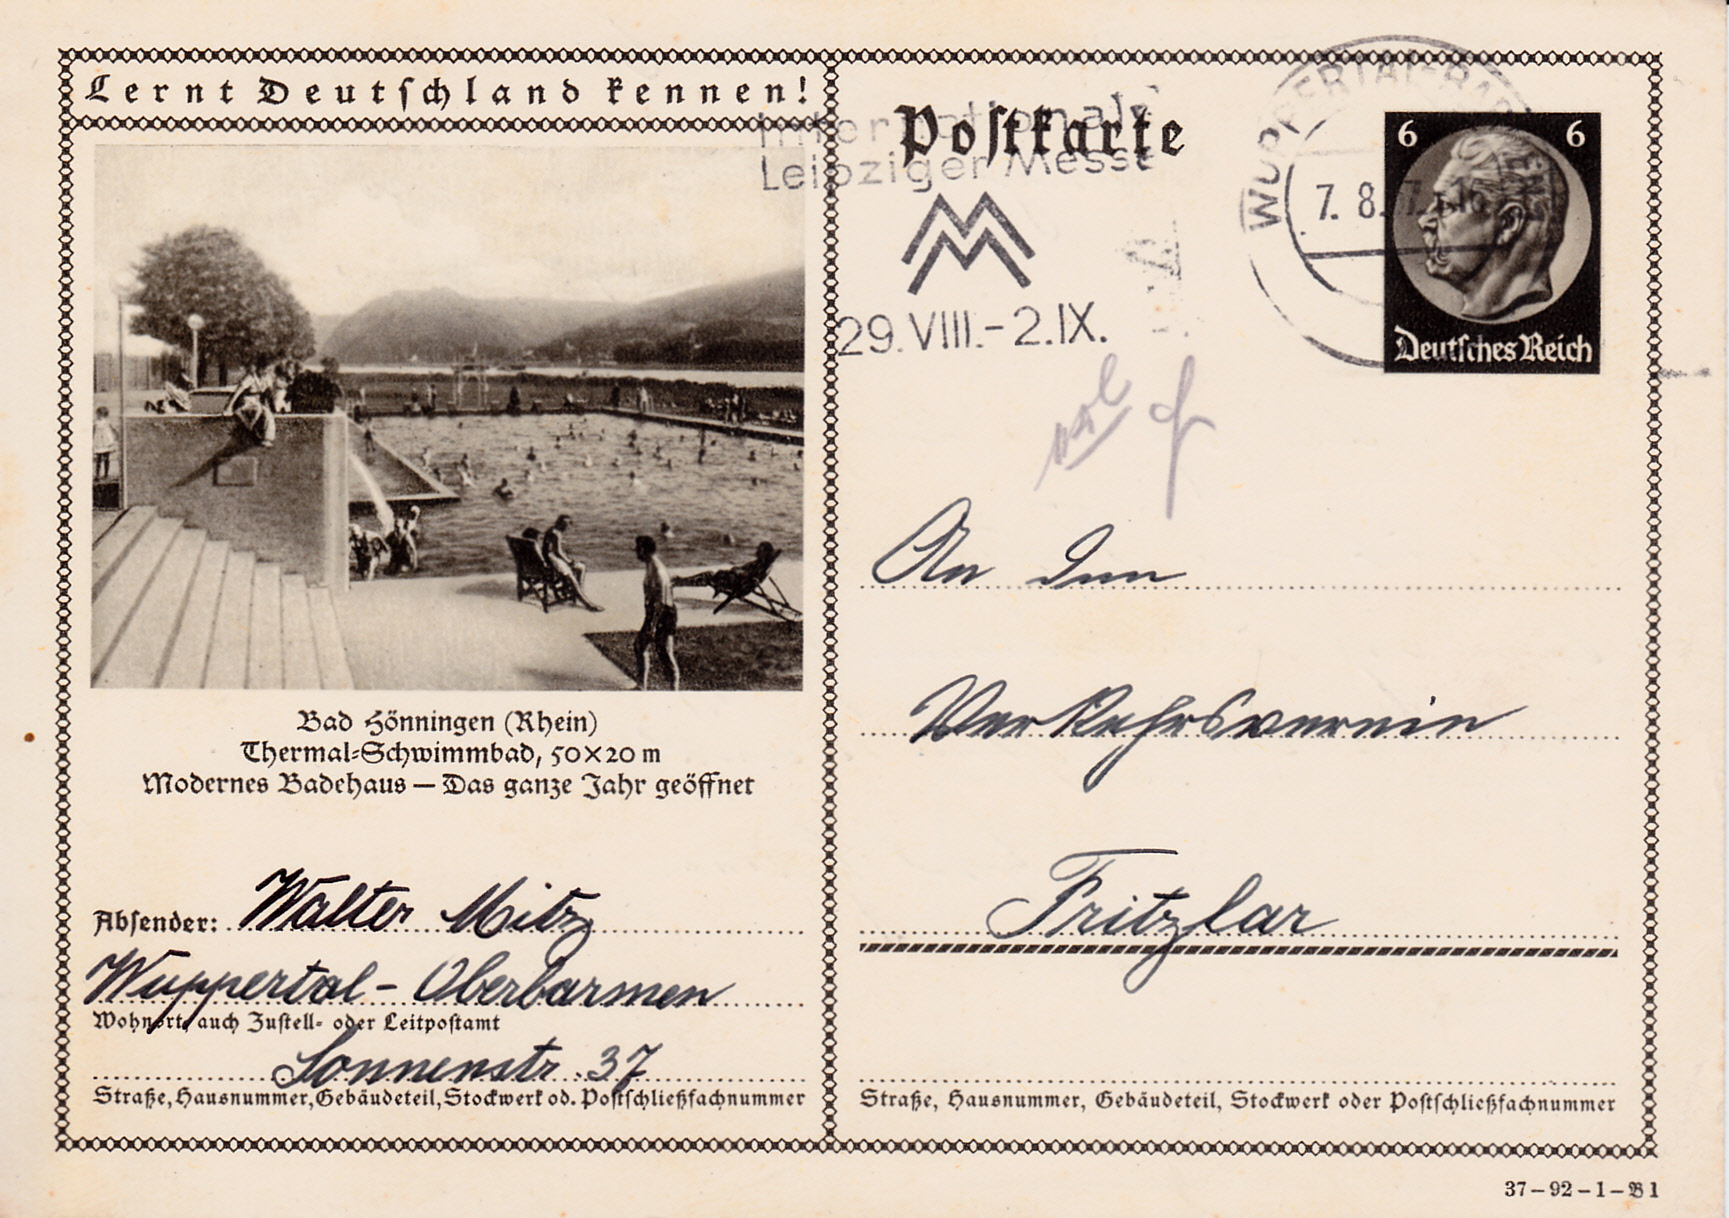 Lernt Deutschland kennen!
Bad Hönningen (Rhein)
Thermal-Schwimmbad, 50×20 m
Modernes Badehaus — Das ganze Jahr geöffnet
Absender: Walter Mitz
Wuppertal-Oberbarmen
Wohnort, auch Zustell- oder Leitpostamt
Sonnenstr. 37
Straße, Hausnummer, Gebäudeteil, Stockwerk od. Postschließfachnummer
Postkarte
Internationale
Leipziger Messe
MM
29.VIII.-2.IX.
WUPPERTAL-BARMEN
7. 8. 37
6 6
Deutsches Reich
An den
Verkehrsverein
Fritzlar
Straße, Hausnummer, Gebäudeteil, Stockwerk oder Postschließfachnummer
37-92-1-B1